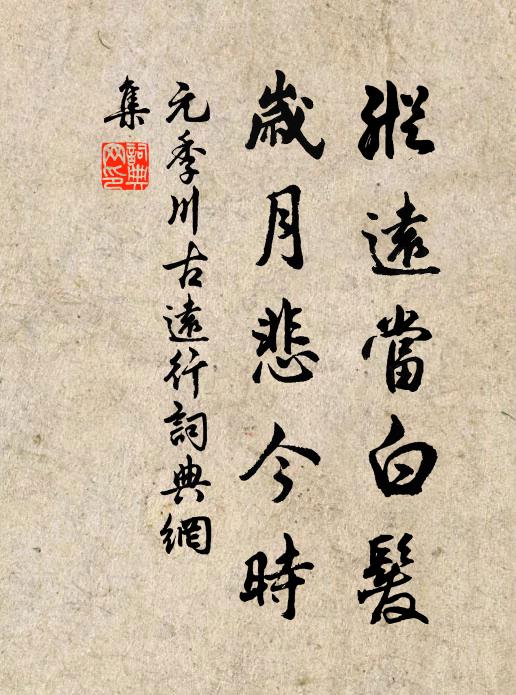 縱遠當白髮
歲月悲今時
元季川古遠行詞典網
集
詞典網印